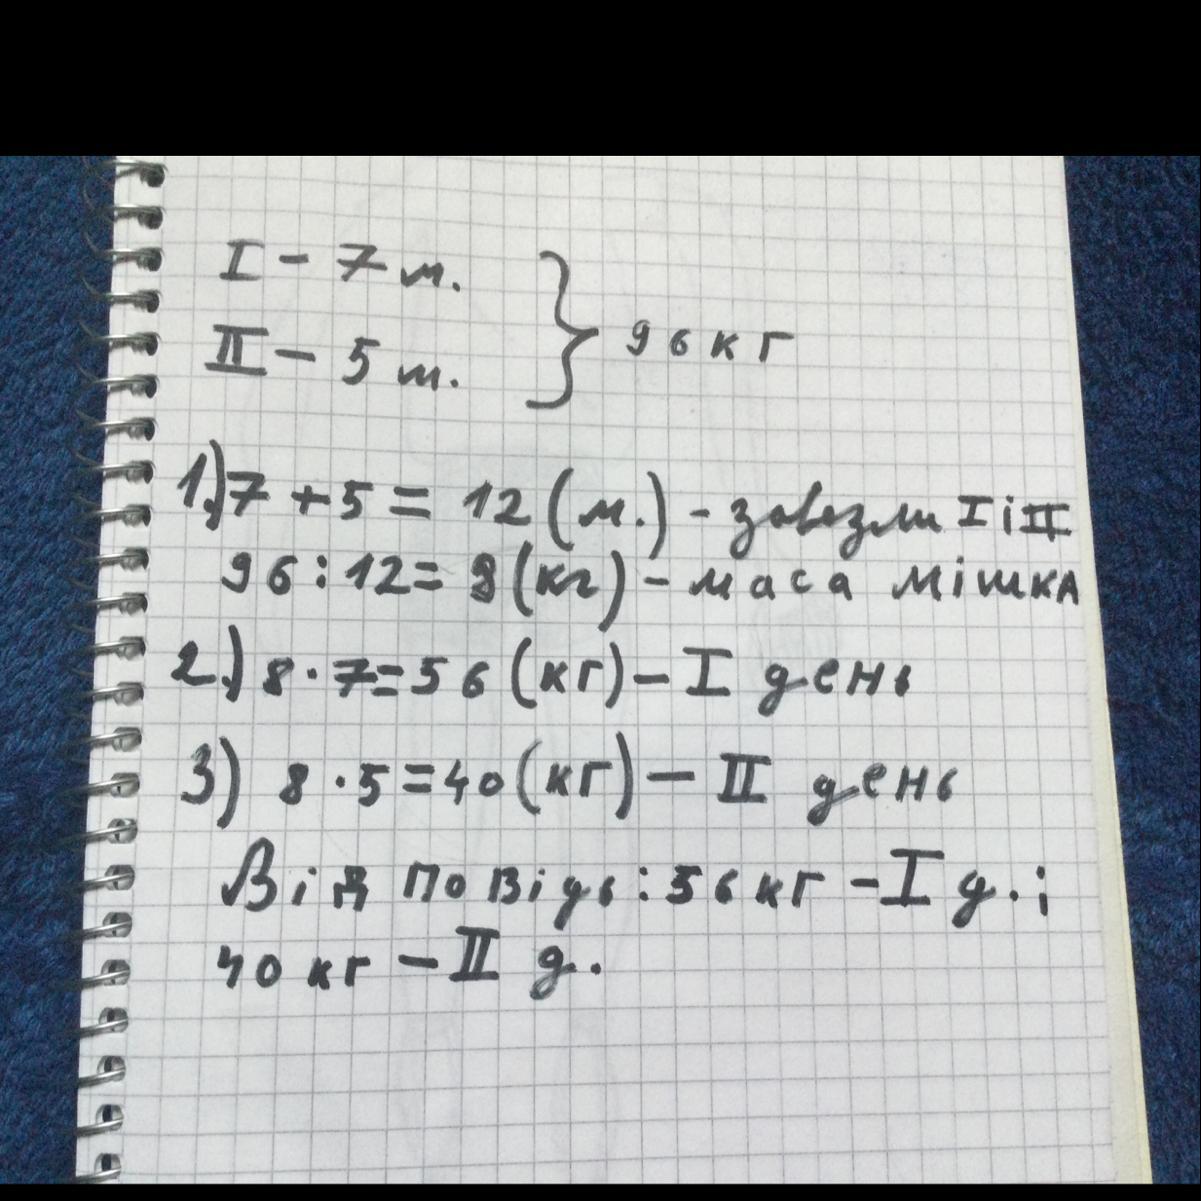 I - 7 м.
II - 5 м.
} 96 кг
1.) 7 + 5 = 12 (м.) - завезли I і II
96 : 12 = 8 (кг) - маса мішка
2.) 8 · 7 = 56 (кг) - I день
3) 8 · 5 = 40 (кг) - II день
Відповідь : 56 кг - I д. ;
40 кг - II д.